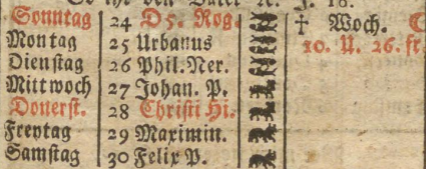 Sonntag 24 D5. Rog. † Woch.
Montag 25 Urbanus 10. U. 26. fr
Dienstag 26 Phil. Ner.
Mittwoch 27 Johan. P.
Donerst. 28 Christi Hi.
Freytag 29 Maximin.
Samstag 30 Felix P.